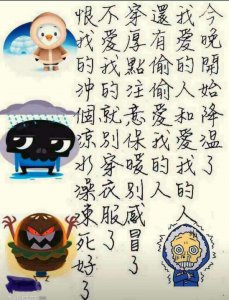 今晚開始降溫了
我愛的人和愛我的人
還有偷偷愛我的人
穿厚點注意保暖別感冒了
不愛我的就別穿衣服了
恨我的沖個涼水澡凍死好了